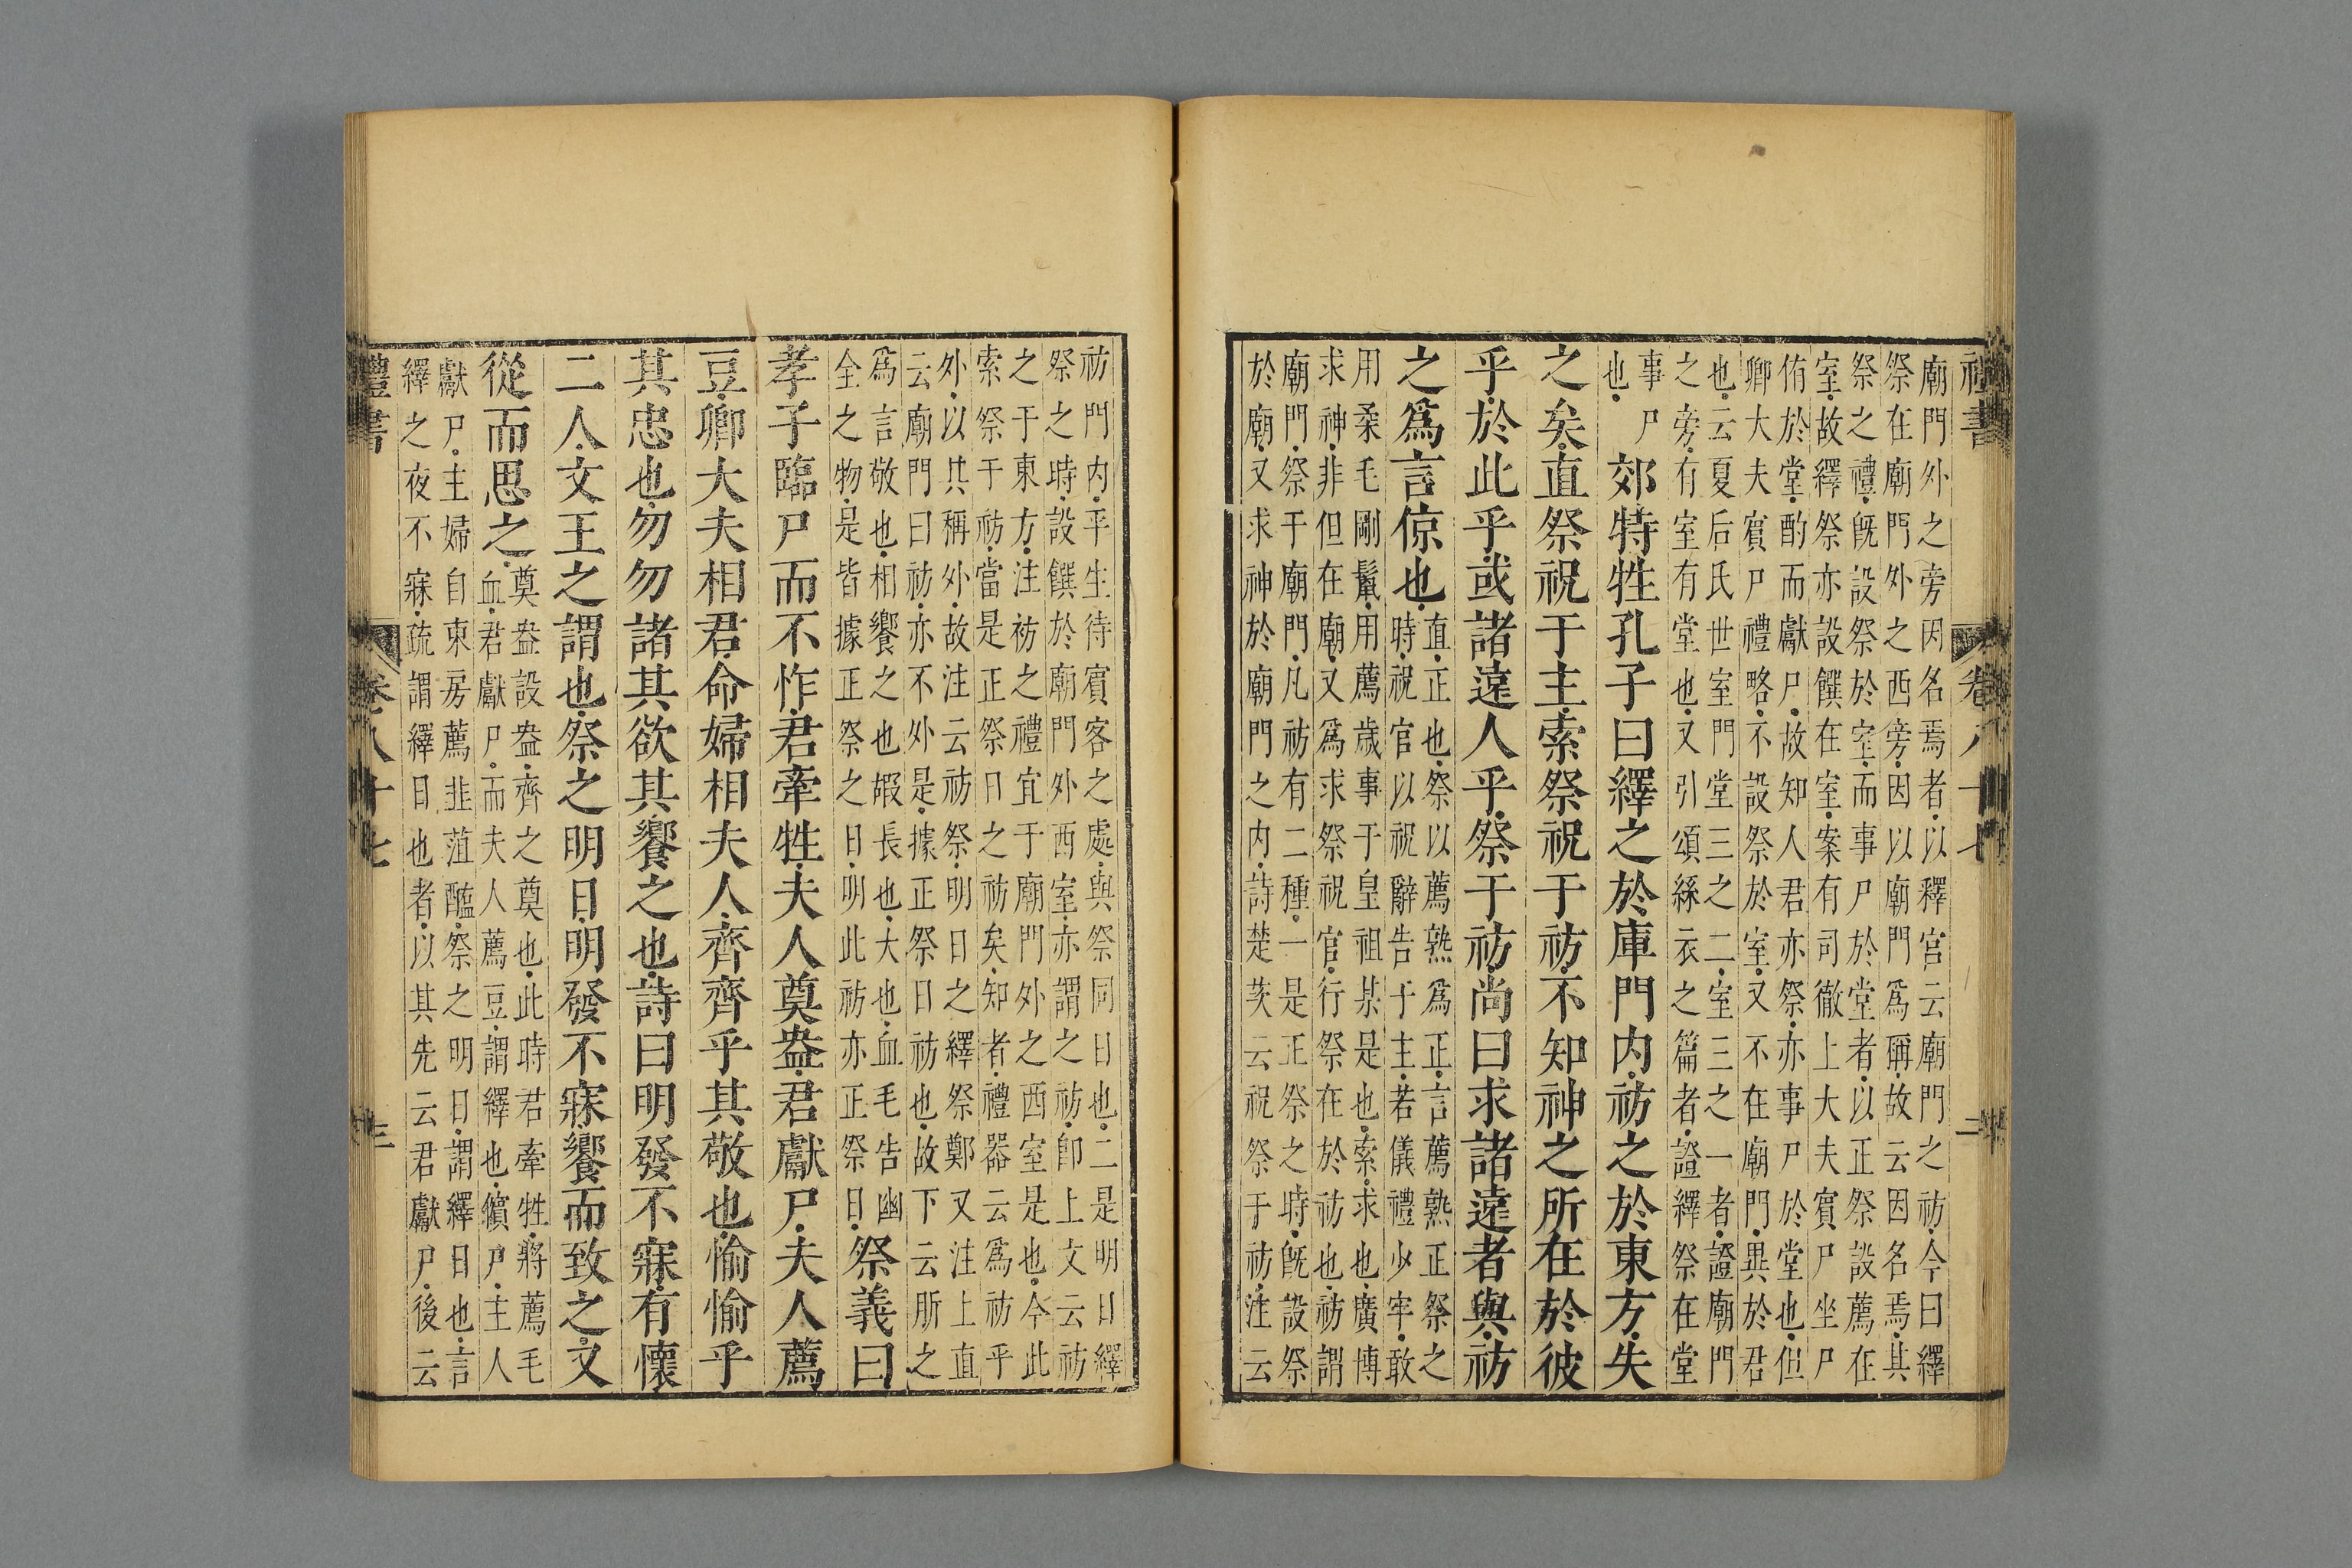 禮書
卷八十七
二
廟門外之旁因名焉者以釋宮云廟門之祊今日繹
祭在廟門外之西旁因以廟門爲稱故云因名焉其
祭之禮旣設祭於室而事尸於堂者以正祭設薦在
室故繹祭亦設饌在室案有司徹上大夫賓尸坐尸
侑於堂酌而獻尸故知人君亦祭亦事尸於堂也但
卿大夫賓尸禮略不設祭於室又不在廟門異於君
也云夏后氏世室門堂三之二室三之一者證廟門
之旁有室有堂也又引頌絲衣之篇者證繹祭在堂
事尸
也
郊特牲孔子曰繹之於庫門內祊之於東方失
之矣直祭祝于主索祭祝于祊不知神之所在於彼
乎於此乎或諸遠人乎祭于祊尚曰求諸遠者與祊
之爲言倞也
直正也祭以薦熟爲正言薦熟正祭之
時祝官以祝辭告于主若儀禮少牢敢
用柔毛剛鬣用薦歲事于皇祖某是也索求也廣博
求神非但在廟又爲求祭祝官行祭在於祊也祊謂
廟門祭于廟門凡祊有二種一是正祭之時旣設祭
於廟又求神於廟門之內詩楚茨云祝祭于祊注云
祊門內平生待賓客之處與祭同日也二是明日繹
祭之時設饌於廟門外西室亦謂之祊卽上文云祊
之于東方注祊之禮宜于廟門外之西室是也今此
索祭于祊當是正祭日之祊矣知者禮器云爲祊乎
外以其稱外故注云祊祭明日之繹祭鄭又注上直
云廟門曰祊亦不外是據正祭日祊也故下云肵之
爲言敬也相饗之也嘏長也大也血毛告幽
全之物是皆據正祭之日明此祊亦正祭日
祭義曰
孝子臨尸而不怍君牽牲夫人奠盎君獻尸夫人薦
豆卿大夫相君命婦相夫人齊齊乎其敬也愉愉乎
其忠也勿勿諸其欲其饗之也詩曰明發不寐有懷
二人文王之謂也祭之明日明發不寐饗而致之又
從而思之
奠盎設盎齊之奠也此時君牽牲將薦毛
血君獻尸而夫人薦豆謂繹也儐尸主人
獻尸主婦自東房薦韭菹醢祭之明日謂繹日也言
繹之夜不寐疏謂繹日也者以其先云君獻尸後云
禮書
卷八十七
三